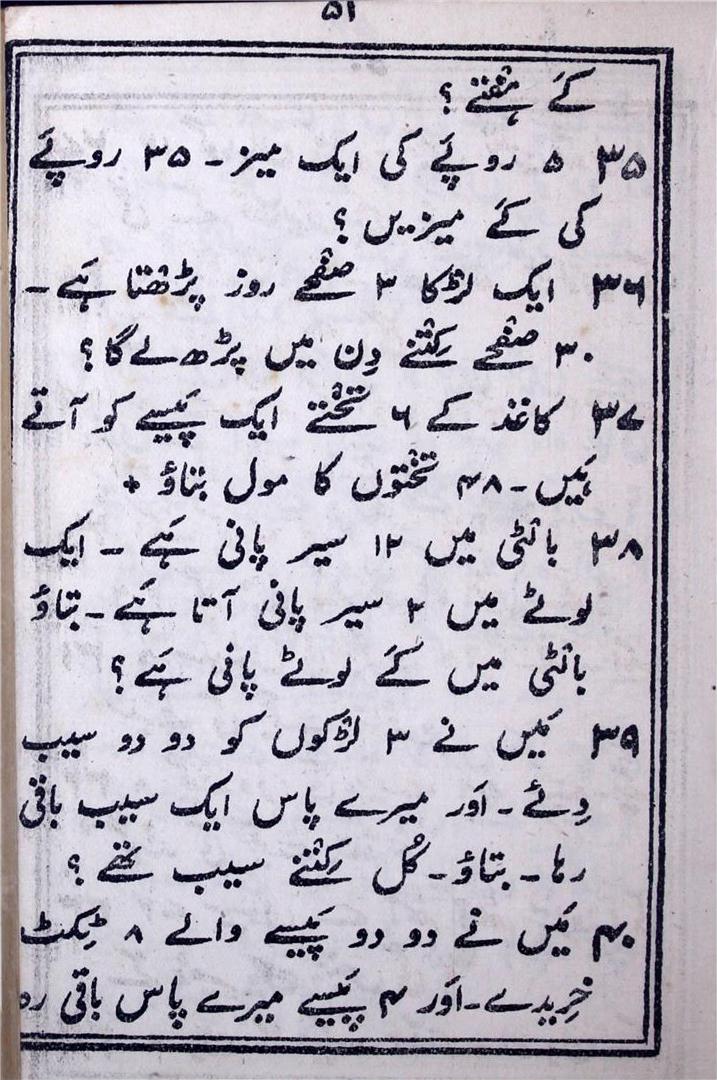 ۵۱
کَے ہفتے ؟
۳۵ ۵ روپَے کی ایک میز ۔ ۳۵ روپَے
کی کَے میزیں ؟
۳۶ ایک لڑکا ۳ صفْحے روز پڑھتا ہَے ۔
۳۰ صفْحے کِتْنے دِن میں پڑھ لے گا ؟
۳۷ کاغذ کے ۶ تخْتے ایک پَیسے کو آتے
ہَیں ۔ ۴۸ تخْتوں کا مول بتاؤ +
۳۸ بالْٹی میں ۱۲ سیر پانی ہَے ۔ ایک
لوٹے میں ۲ سیر پانی آتا ہَے ۔ بتاؤ
بالْٹی میں کَے لوٹے پانی ہَے ؟
۳۹ مَیں نے ۳ لڑکوں کو دو دو سیب
دِئے ۔ اَور میرے پاس ایک سیب باقی
رہا ۔ بتاؤ ۔ کُل کِتْنے سیب تھے ؟
۴۰ مَیں نے دو دو پَیسے والے ۸ ٹِکٹ
خرِیدے ۔ اَور ۴ پَیسے میرے پاس باقی رہ